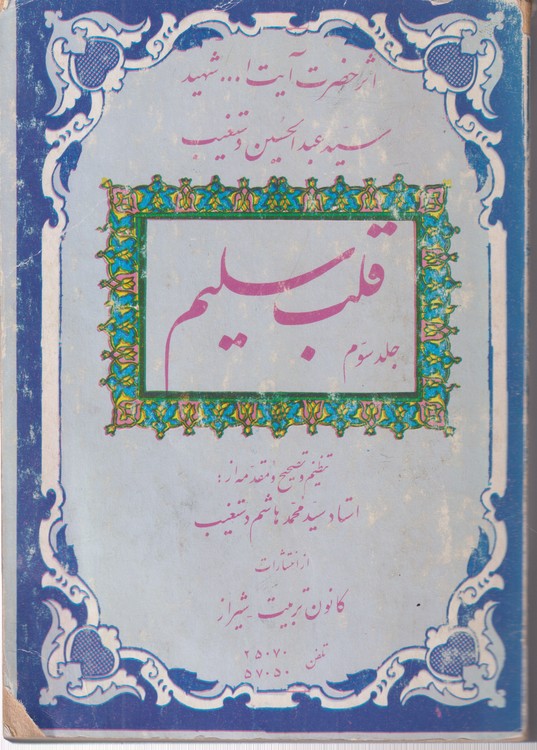 اثر حضرت آیت ا... شهید
سید عبدالحسین دستغیب
قلب سلیم
جلد سوّم
تنظیم و تصحیح و مقدمه از:
استاد سید محمد هاشم دستغیب
از انتشارات
کانون تربیت - شیراز
تلفن ۲۵۰۷۰
۵۷۰۵۰